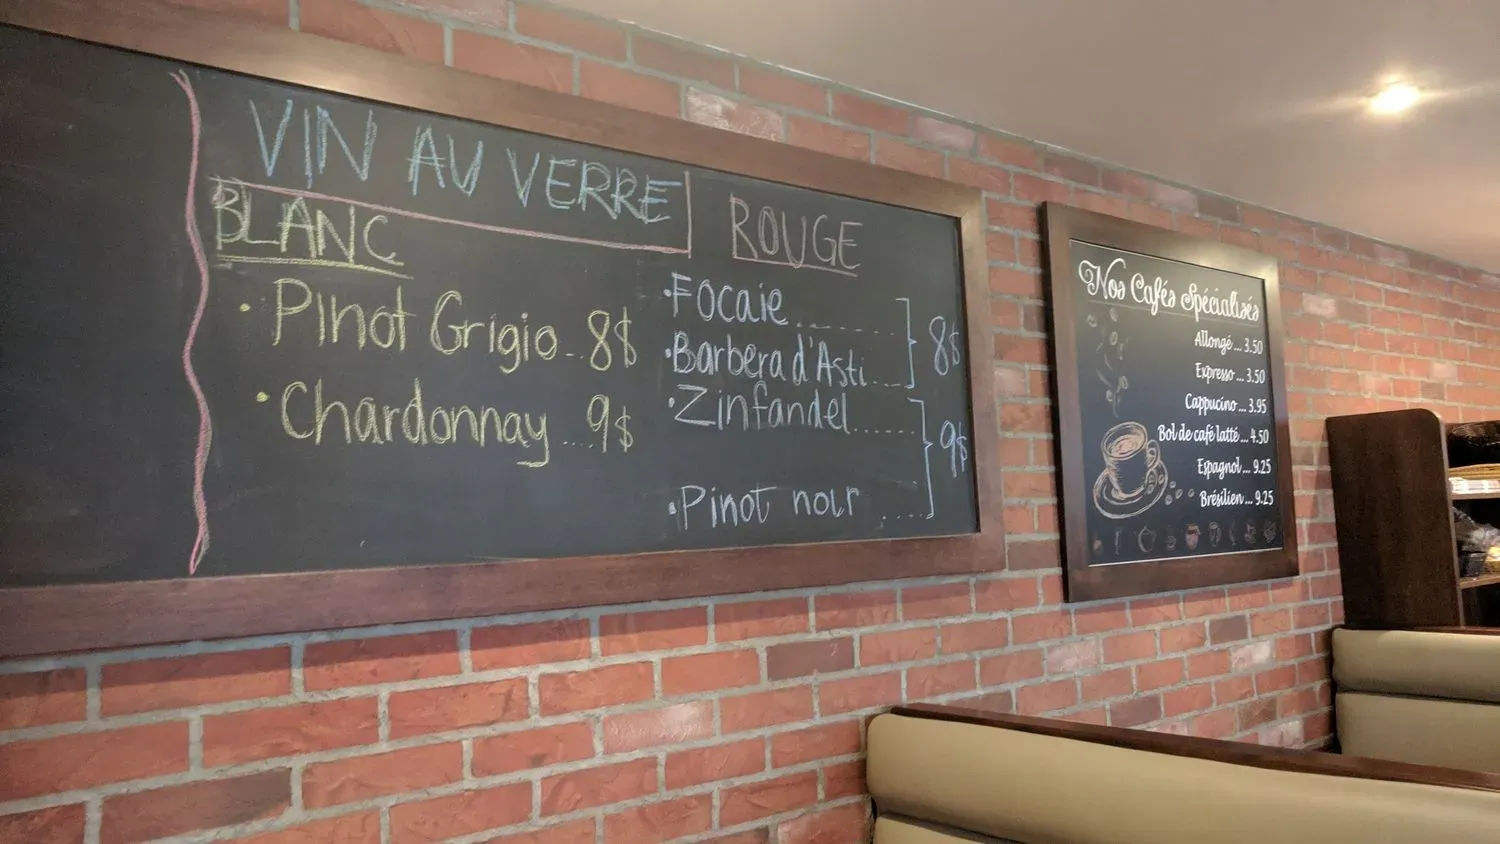 VIN AU VERRE
BLANC
• Pinot Grigio .. 8$
• Chardonnay .... 9$
ROUGE
• Focaie ............
• Barbera d'Asti .... 8$
• Zinfandel .......
• Pinot noir .... 9$
Nos Cafés Spécialisés
Allongé ... 3.50
Expresso ... 3.50
Cappucino ... 3.95
Bol de café latté ... 4.50
Espagnol ... 9.25
Brésilien ... 9.25